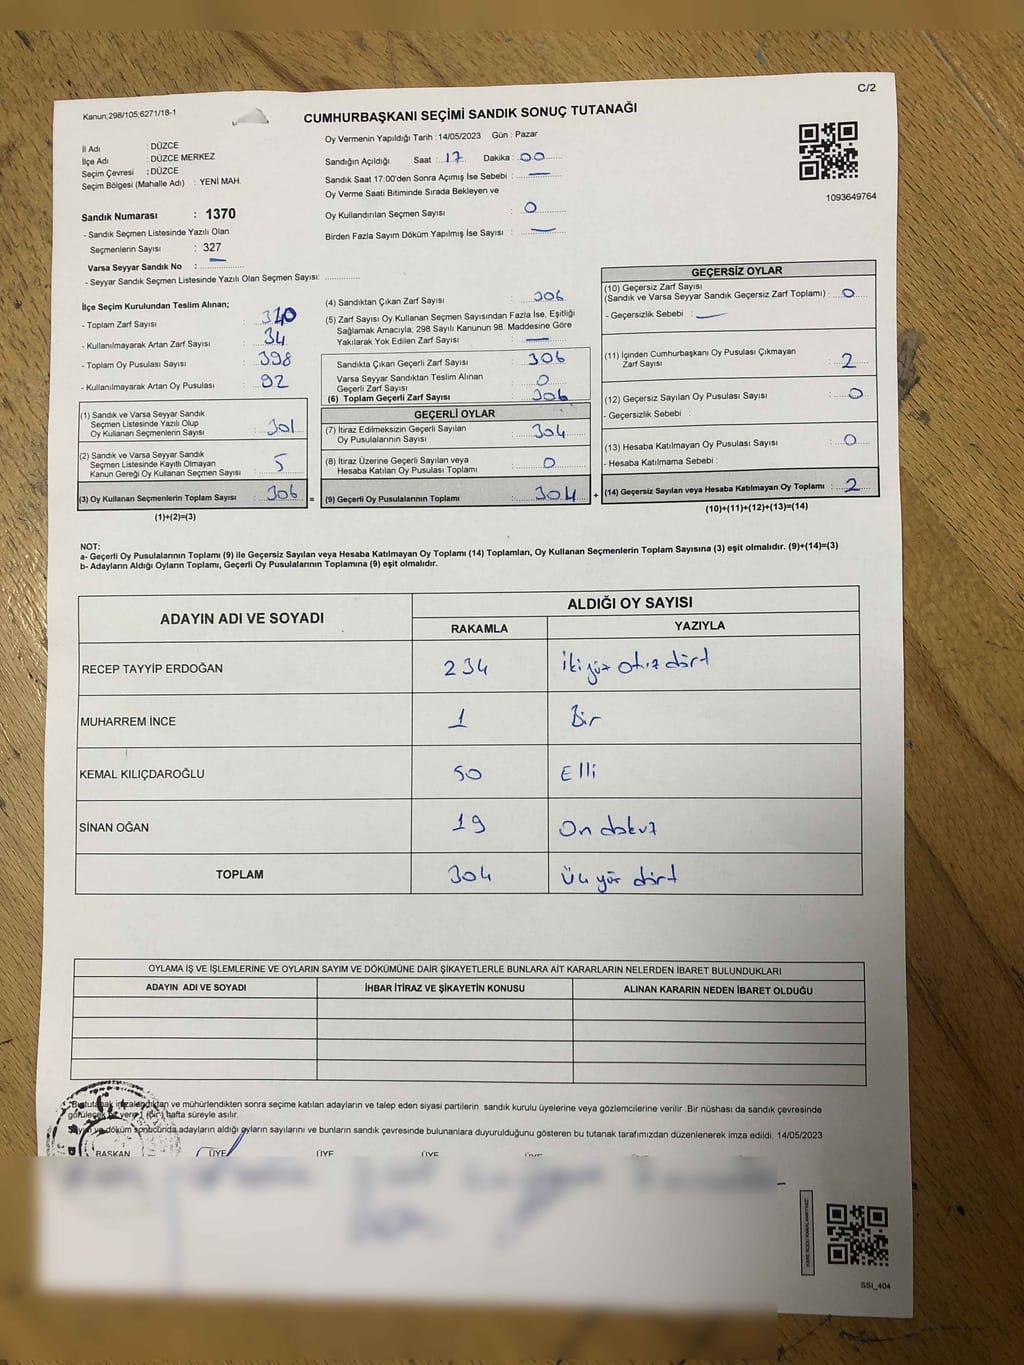 C/2
Kanun;298/105;6271/18-1
CUMHURBAŞKANI SEÇİMİ SANDIK SONUÇ TUTANAĞI
İl Adı : DÜZCE
İlçe Adı : DÜZCE MERKEZ
Seçim Çevresi : DÜZCE
Seçim Bölgesi (Mahalle Adı) : YENİ MAH.
Sandık Numarası : 1370
- Sandık Seçmen Listesinde Yazılı Olan
Seçmenlerin Sayısı : 327
Varsa Seyyar Sandık No : —
- Seyyar Sandık Seçmen Listesinde Yazılı Olan Seçmen Sayısı: ..............
Oy Vermenin Yapıldığı Tarih : 14/05/2023 Gün : Pazar
Sandığın Açıldığı Saat : 17 Dakika : 00
Sandık Saat 17:00'den Sonra Açımış İse Sebebi : —
Oy Verme Saati Bitiminde Sırada Bekleyen ve
Oy Kullandırılan Seçmen Sayısı : 0
Birden Fazla Sayım Döküm Yapılmış İse Sayısı : —
1093649764
İlçe Seçim Kurulundan Teslim Alınan;
- Toplam Zarf Sayısı : 340
- Kullanılmayarak Artan Zarf Sayısı : 34
- Toplam Oy Pusulası Sayısı : 398
- Kullanılmayarak Artan Oy Pusulası : 92
(1) Sandık ve Varsa Seyyar Sandık
Seçmen Listesinde Yazılı Olup
Oy Kullanan Seçmenlerin Sayısı : 301
(2) Sandık ve Varsa Seyyar Sandık
Seçmen Listesinde Kayıtlı Olmayan
Kanun Gereği Oy Kullanan Seçmen Sayısı : 5
(3) Oy Kullanan Seçmenlerin Toplam Sayısı : 306 =
(1)+(2)=(3)
(4) Sandıktan Çıkan Zarf Sayısı : 306
(5) Zarf Sayısı Oy Kullanan Seçmen Sayısından Fazla İse, Eşitliği
Sağlamak Amacıyla; 298 Sayılı Kanunun 98. Maddesine Göre
Yakılarak Yok Edilen Zarf Sayısı : —
Sandıkta Çıkan Geçerli Zarf Sayısı : 306
Varsa Seyyar Sandıktan Teslim Alınan
Geçerli Zarf Sayısı : 0
(6) Toplam Geçerli Zarf Sayısı : 306
GEÇERLİ OYLAR
(7) İtiraz Edilmeksizin Geçerli Sayılan
Oy Pusulalarının Sayısı : 304
(8) İtiraz Üzerine Geçerli Sayılan veya
Hesaba Katılan Oy Pusulası Toplamı : 0
(9) Geçerli Oy Pusulalarının Toplamı : 304 +
GEÇERSİZ OYLAR
(10) Geçersiz Zarf Sayısı
(Sandık ve Varsa Seyyar Sandık Geçersiz Zarf Toplamı) : 0
- Geçersizlik Sebebi : —
(11) İçinden Cumhurbaşkanı Oy Pusulası Çıkmayan
Zarf Sayısı : 2
(12) Geçersiz Sayılan Oy Pusulası Sayısı : 0
- Geçersizlik Sebebi :
(13) Hesaba Katılmayan Oy Pusulası Sayısı : 0
- Hesaba Katılmama Sebebi :
(14) Geçersiz Sayılan veya Hesaba Katılmayan Oy Toplamı : 2
(10)+(11)+(12)+(13)=(14)
NOT:
a- Geçerli Oy Pusulalarının Toplamı (9) ile Geçersiz Sayılan veya Hesaba Katılmayan Oy Toplamı (14) Toplamları, Oy Kullanan Seçmenlerin Toplam Sayısına (3) eşit olmalıdır. (9)+(14)=(3)
b- Adayların Aldığı Oyların Toplamı, Geçerli Oy Pusulalarının Toplamına (9) eşit olmalıdır.
ADAYIN ADI VE SOYADI ALDIĞI OY SAYISI
RAKAMLA YAZIYLA
RECEP TAYYİP ERDOĞAN 234 iki yüz otuz dört
MUHARREM İNCE 1 Bir
KEMAL KILIÇDAROĞLU 50 Elli
SİNAN OĞAN 19 On dokuz
TOPLAM 304 Üç yüz dört
OYLAMA İŞ VE İŞLEMLERİNE VE OYLARIN SAYIM VE DÖKÜMÜNE DAİR ŞİKAYETLERLE BUNLARA AİT KARARLARIN NELERDEN İBARET BULUNDUKLARI
ADAYIN ADI VE SOYADI İHBAR İTİRAZ VE ŞİKAYETİN KONUSU ALINAN KARARIN NEDEN İBARET OLDUĞU
Bu tutanak imzalandıktan ve mühürlendikten sonra seçime katılan adayların ve talep eden siyasi partilerin sandık kurulu üyelerine veya gözlemcilerine verilir. Bir nüshası da sandık çevresinde
görülecek bir yere 1 (bir) hafta süreyle asılır.
Sayım ve döküm sonucunda adayların aldığı oyların sayılarını ve bunların sandık çevresinde bulunanlara duyurulduğunu gösteren bu tutanak tarafımızdan düzenlenerek imza edildi. 14/05/2023
BAŞKAN ÜYE ÜYE ÜYE ÜYE
SSI_404